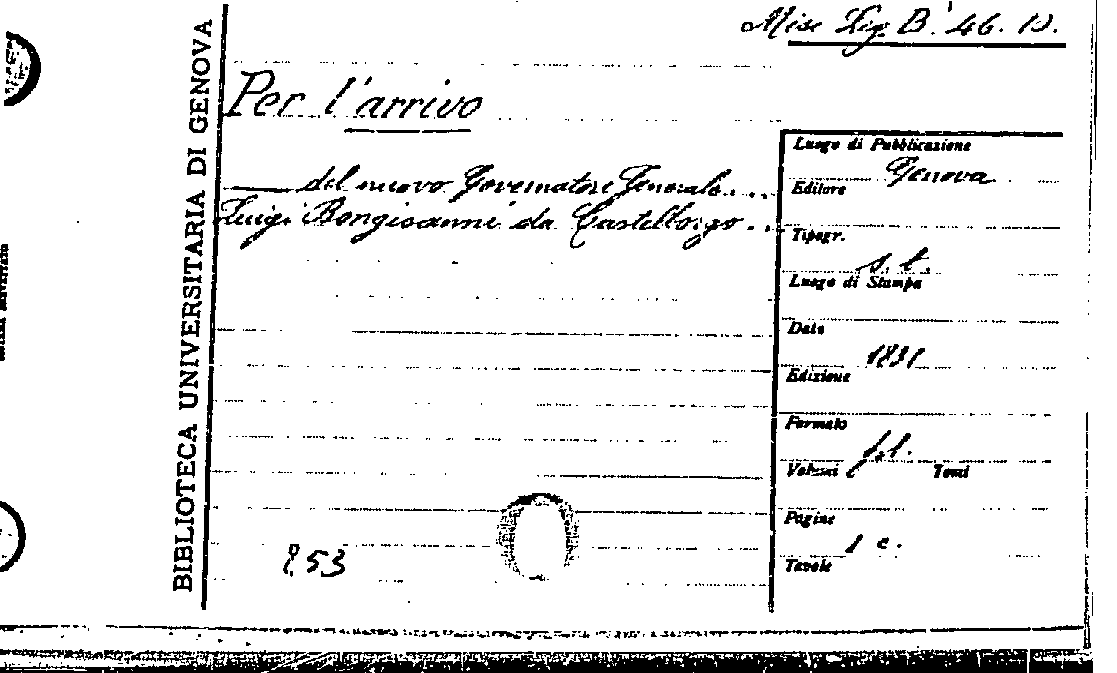 Misc Lig. B. 46. 10.
BIBLIOTECA UNIVERSITARIA DI GENOVA
Per l'arrivo
del nuovo Governatore Generale...
Luigi Bongioanni da Castelborgo...
Luogo di Pubblicazione
Genova
Editore
Tipogr.
s. t.
Luogo di Stampa
Data
1831
Edizione
Formato
fol.
Volumi Tomi
Pagine
1 c.
Tavole
853